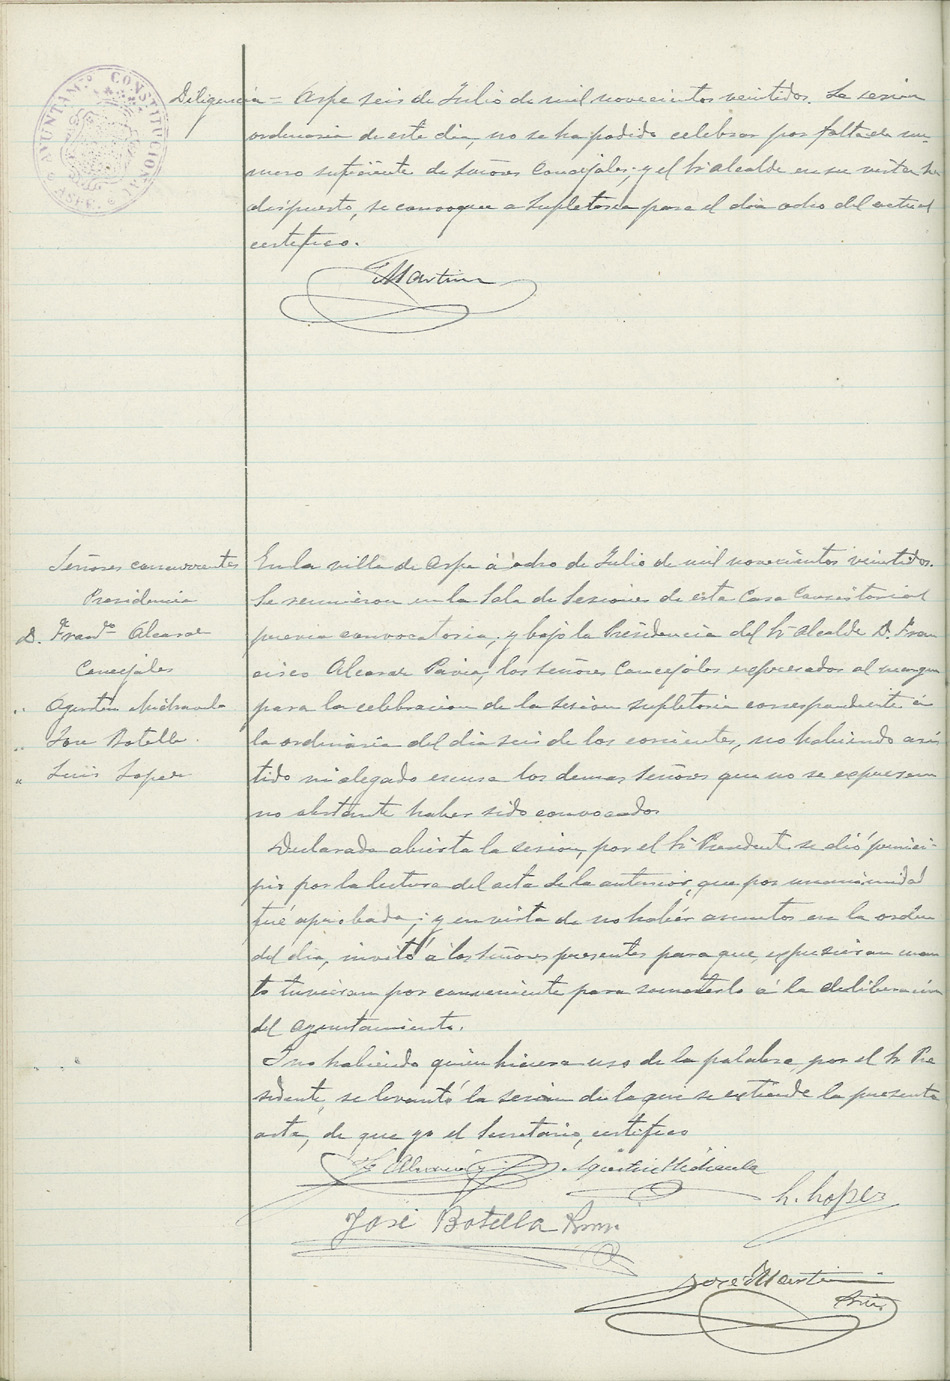 AYUNTAM.º CONSTITUCIONAL
ASPE
Diligencia = Aspe seis de Julio de mil novecientos veintidos. La sesion
ordinaria de este dia, no se ha podido celebrar por falta de nu-
mero suficiente de señores Concejales; y el Sr. Alcalde en su vista ha
dispuesto, se convoque a supletoria para el dia ocho del actual
certifico.
Martinez
Señores concurrentes
Presidencia
D. Fran.co Alcaraz
Concejales
" Agustin Midravila
" Jose Botella.
" Luis Lopez
En la villa de Aspe á ocho de Julio de mil novecientos veintidos.
Se reunieron en la Sala de Sesiones de esta Casa Consistorial
previa convocatoria, y bajo la Presidencia del Sr. Alcalde D. Fran
cisco Alcaraz Pavia, los señores Concejales expresados al margen
para la celebracion de la sesion supletoria correspondiente á
la ordinaria del dia seis de los corrientes, no habiendo asis
tido ni alegado escusa los demas Señores que no se expresan
no obstante haber sido convocados
Declarada abierta la sesion, por el Sr. Presidente se dió princi-
pio por la lectura del acta de la anterior, que por unanimidad
fué aprobada; y en virtu de no haber asuntos en la orden
del dia, invitó á los Señores presentes para que expusieran cuan
to tuvieran por conveniente para someterlo á la deliberacion
del Ayuntamiento.
I no habiendo quien hiciera uso de la palabra, por el Sr. Pre
sidente, se levantó la sesion de la que se extiende la presente
acta, de que yo el Secretario, certifico
F. Alcaraz Agustin Midravila
L. Lopez
José Botella
José Martinez